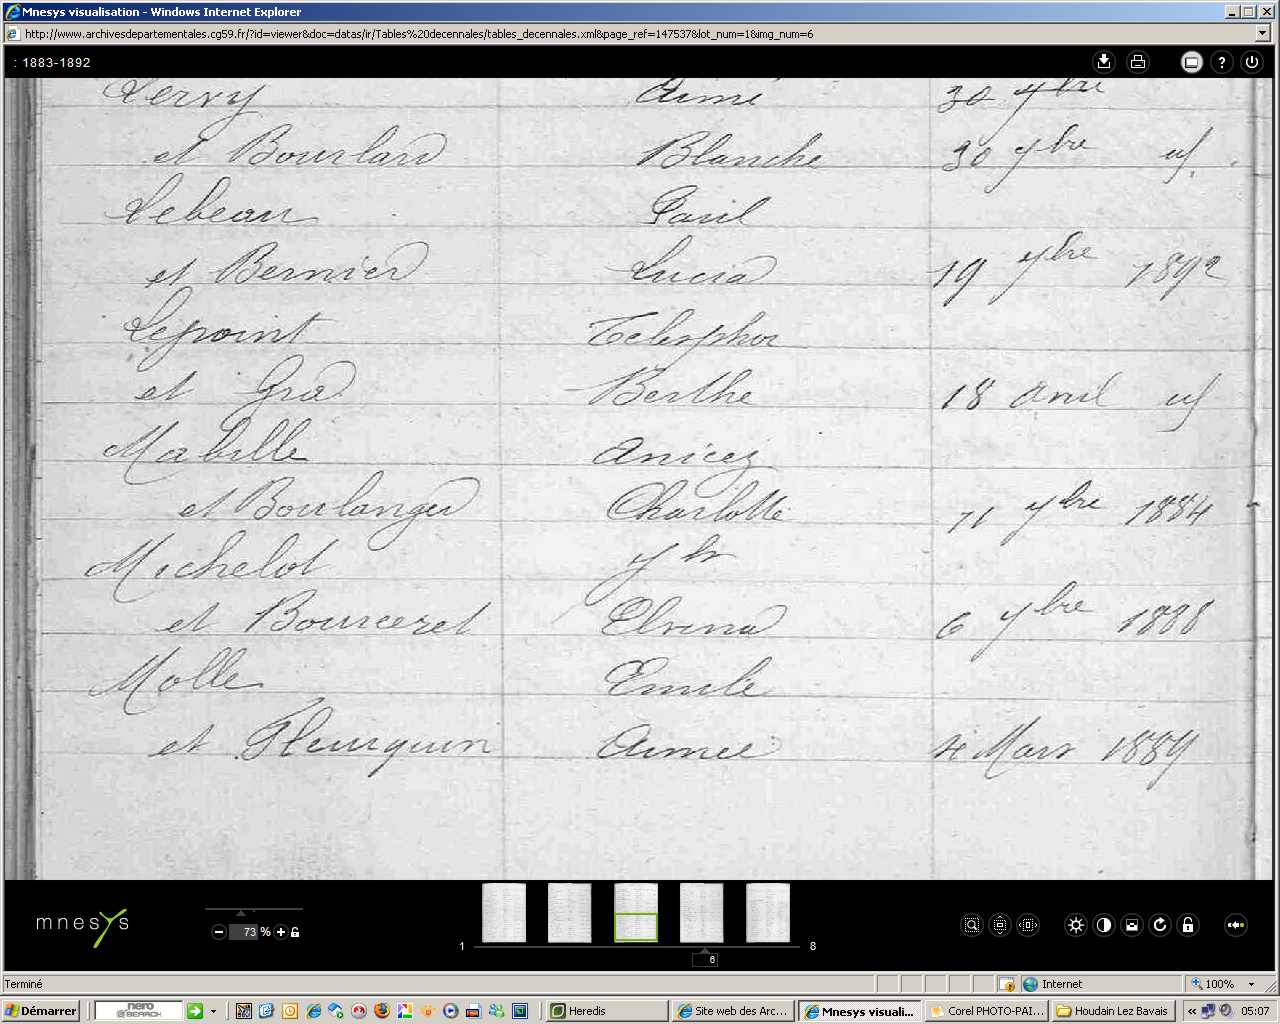 Mnesys visualisation - Windows Internet Explorer
http://www.archivesdepartementales.cg59.fr/?id=viewer&doc=datas/ir/Tables%20decennales/tables_decennales.xml&page_ref=147537&lot_num=1&img_num=6
: 1883-1892
Lervy Aimé 30 7bre
et Bourlard Blanche 30 7bre
Lebeau Paul
et Bernier Lucia 19 7bre 1892
Lepoint Telesphor
et Gra Berthe 18 avril
Mabille Anicez
et Boulanger Charlotte 11 7bre 1884
Michelot
et Bourceret Elvina 6 7bre 1888
Molle Emile
et Fleurquin Aimée 4 Mars 1889
mnesys
73 %
1 8
6
Terminé Internet 100%
Démarrer nero SEARCH Heredis Site web des Arc... Mnesys visuali... Corel PHOTO-PAI... Houdain Lez Bavais 05:07